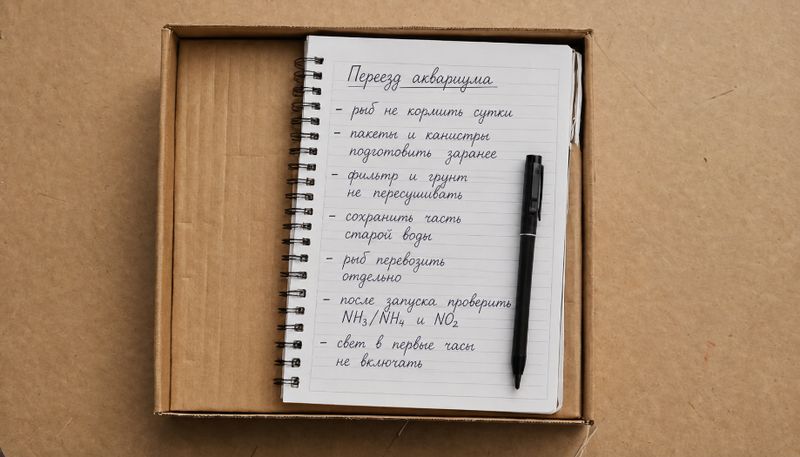 Переезд аквариума
- рыб не кормить сутки
- пакеты и канистры
подготовить заранее
- фильтр и грунт
не пересушивать
- сохранить часть
старой воды
- рыб перевозить
отдельно
- после запуска проверить
NH₃/NH₄ и NO₂
- свет в первые часы
не включать